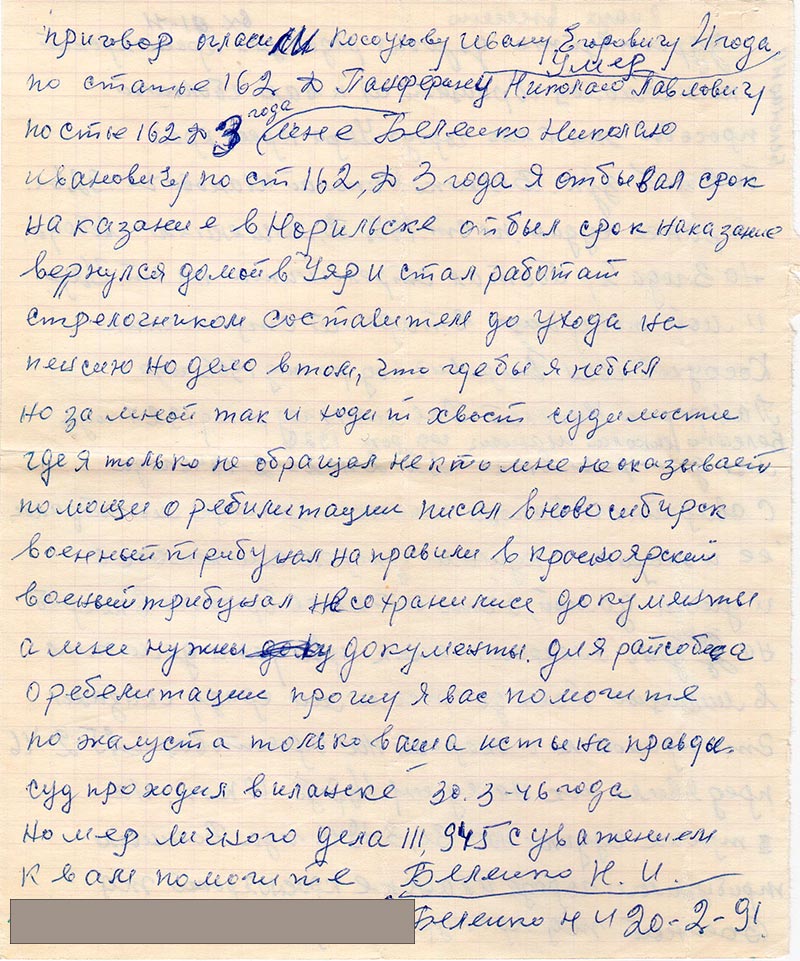 приговор огласили Косоухову Ивану Егоровичу 4 года,
умер
по статье 162 Д Панферану Николаю Павловичу
года
по стье 162 Д 3 (мне Беленко Николаю
Ивановичу по ст 162, Д 3 года я отбывал срок
на казание в Норильске отбыл срок наказание
вернулся домой в Уяр и стал работат
стрелочником составителем до ухода на
пенсию но дело в том, что где бы я небыл
но за мной так и ходит хвост судимости
где я только не обращал некто мне неоказывает
помощи о ребилитации писал в новосибирск
военный трибунал направили в красноярский
военый трибунал не сохранились документы
а мне нужны документы. для райсобеса
о ребелитации прошу я вас помогите
по жалуста только ваша истына правды.
суд проходил в иланске 30.3-46 года
номер личного дела III 945 с уважением
к вам помогите Беленко Н. И.
Беленко Н И 20-2-91.